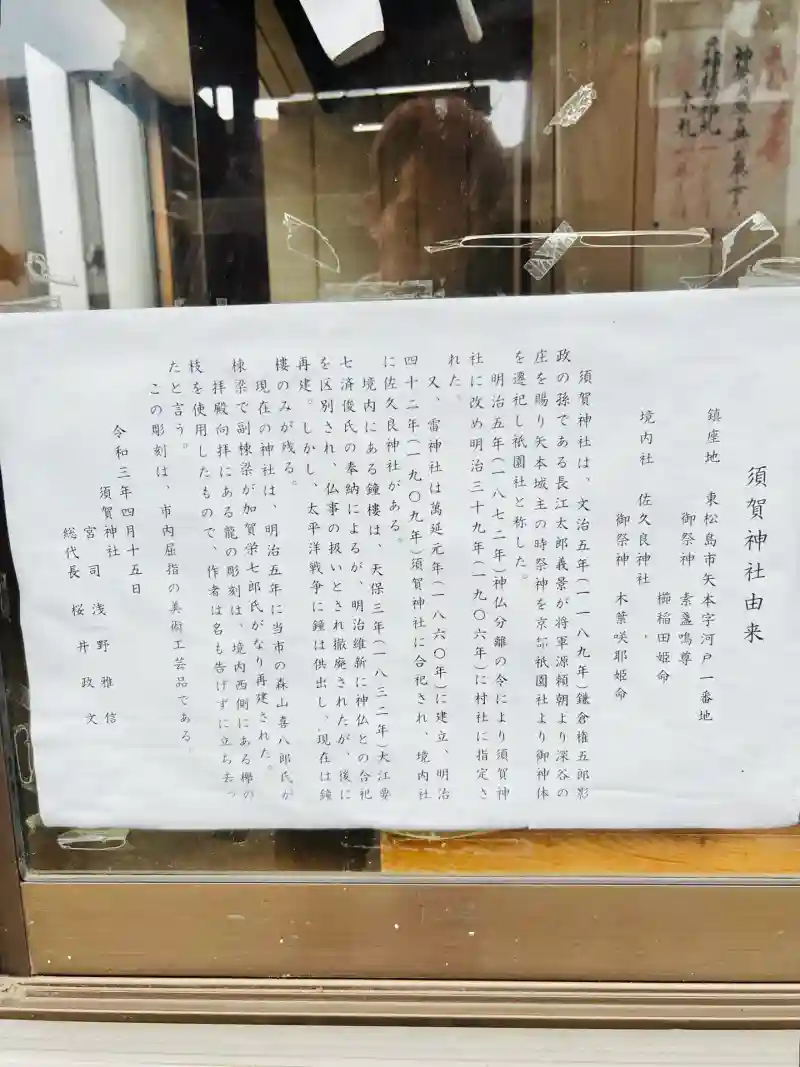 須賀神社由来
鎮座地　東松島市矢本字河戸一番地
御祭神　素盞嗚尊
櫛稲田姫命
境内社　佐久良神社
御祭神　木葉咲耶姫命
須賀神社は、文治五年(一一八九年)鎌倉権五郎影
政の孫である長江太郎義景が将軍源頼朝より深谷の
庄を賜り矢本城主の時祭神を京都祇園社より御神体
を遷祀し祇園社と称した。
明治五年(一八七二年)神仏分離の令により須賀神
社に改め明治三十九年(一九〇六年)に村社に指定さ
れた。
又、雷神社は萬延元年(一八六〇年)に建立、明治
四十二年(一九〇九年)須賀神社に合祀され、境内社
に佐久良神社がある。
境内にある鐘樓は、天保三年(一八三二年)大江要
七済俊氏の奉納によるが、明治維新に神仏との合祀
を区別され、仏事の扱いとされ撤廃されたが、後に
再建。しかし、太平洋戦争に鐘は供出し、現在は鐘
樓のみが残る。
現在の神社は、明治五年に当市の森山喜八郎氏が
棟梁で副棟梁が加賀栄七郎氏がなり再建された。
拝殿向拝にある龍の彫刻は、境内西側にある欅の
枝を使用したもので、作者は名も告げずに立ち去っ
たと言う。
この彫刻は、市内屈指の美術工芸品である。
令和三年四月十五日
須賀神社
宮司　浅野雅信
総代長　桜井政文